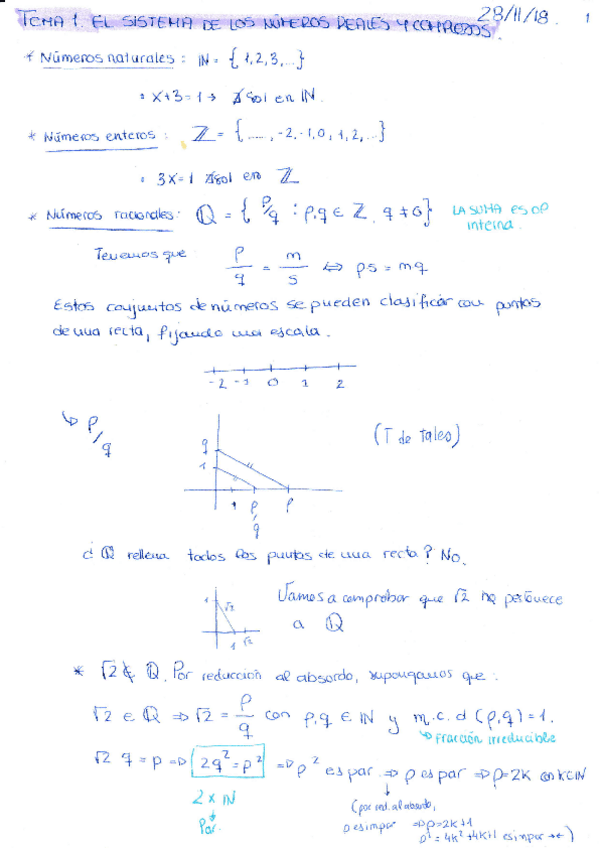 28/11/18. 1
TEMA 1. EL SISTEMA DE LOS NÚMEROS REALES Y COMPLEJOS.
* Números naturales: ℕ = {1,2,3,...}
• x+3=1 → ∄ sol en ℕ.
* Números enteros: ℤ = {....., -2,-1,0,1,2,...}
• 3x=1 ∄ sol en ℤ
* Números racionales: ℚ = { p/q : p,q ∈ ℤ, q ≠ 0} LA SUMA ES OP
interna.
Tenemos que p/q = m/s ⇔ ps = mq
Estos conjuntos de números se pueden clasificar con puntos
de una recta, fijando una escala.
-2 -1 0 1 2
↳ p/q (T de Tales)
q
1
p/q p
¿ℚ rellena todos los puntos de una recta? No.
Vamos a comprobar que √2 no pertenece
a ℚ
1 √2
1 √2
* √2 ∉ ℚ. Por reducción al absurdo, supongamos que:
√2 ∈ ℚ ⇒ √2 = p/q con p,q ∈ ℕ y m.c.d (p,q)=1.
↳ Fracción irreducible
√2 q = p ⇒ 2q² = p² ⇒ p² es par. ⇒ p es par ⇒ p=2k con k∈ℕ
2 x ℕ
↓
Par.
↓
(por red. al absurdo,
p es impar ⇒ p=2k+1
p² = 4k²+4k+1 es impar →←)